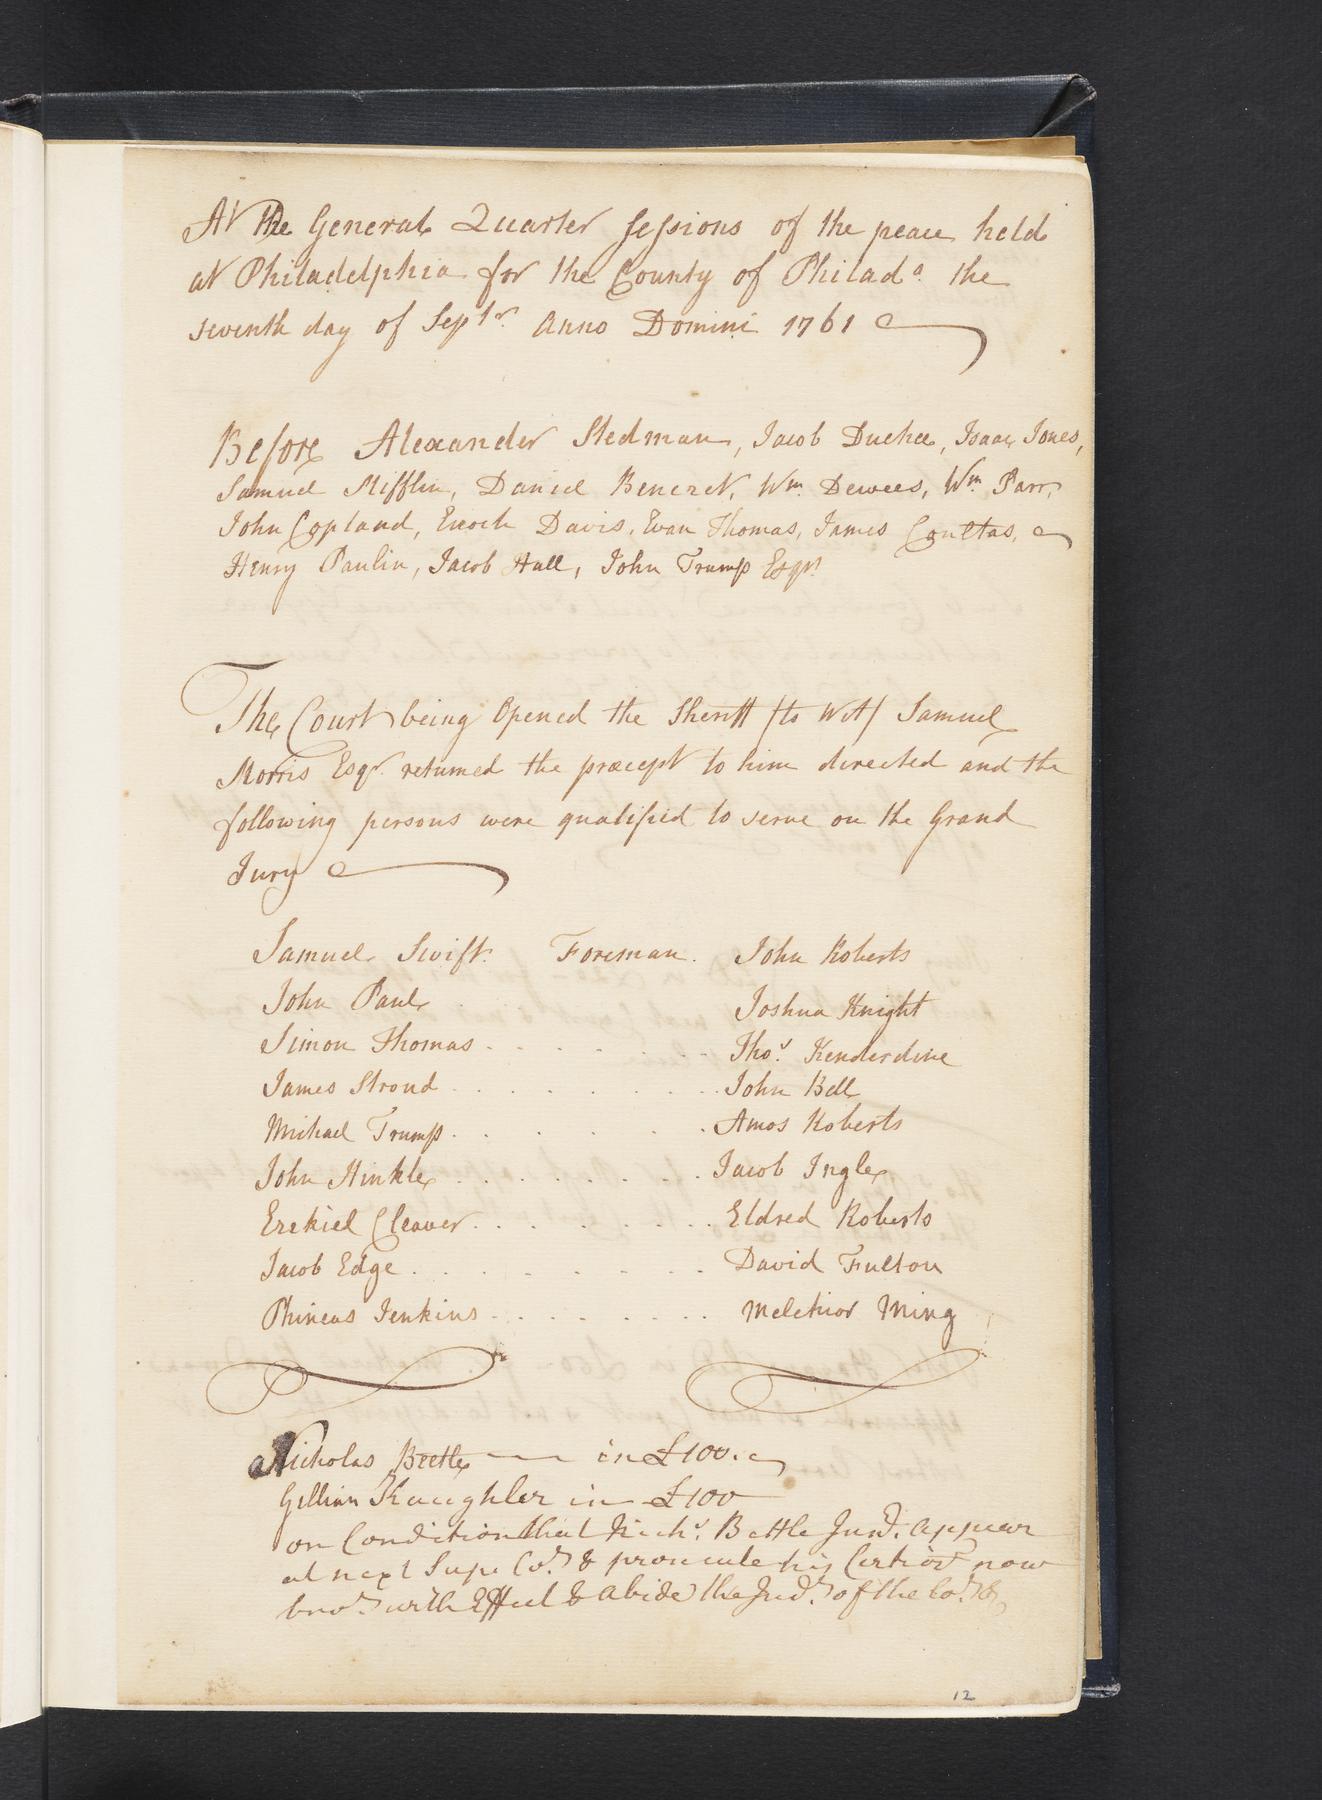 At the General Quarter Sessions of the peace held
at Philadelphia for the County of Philad.a the
seventh day of Septr. Anno Domini 1761
Before Alexander Stedman, Jacob Duchee, Isaac Jones,
Samuel Mifflin, Daniel Benezet, Wm. Dewees, Wm. Parr,
John Copland, Enoch Davis, Evan Thomas, James Coultas,
Henry Paulin, Jacob Hall, John Trump Esqrs.
The Court being Opened the Sheriff (to Wit) Samuel
Morris Esqr. returned the præcept to him directed and the
following persons were qualified to serve on the Grand
Jury
Samuel Swift. Foreman. John Roberts
John Paul Joshua Knight
Simon Thomas Thos. Kenderdine
James Stroud John Bell
Michael Trump Amos Roberts
John Hinkle Jacob Ingle
Ezekiel Cleaver Eldred Roberts
Jacob Edge David Fulton
Phineas Jenkins Melchior Ming
Nicholas Beetle in £100.
Gillian in £100
on Condition that Nichs. Bettle Junr. appear
at next Supe. Cot. & prosecute his now
with Effect & abide the Judt. of the Cot. &
12